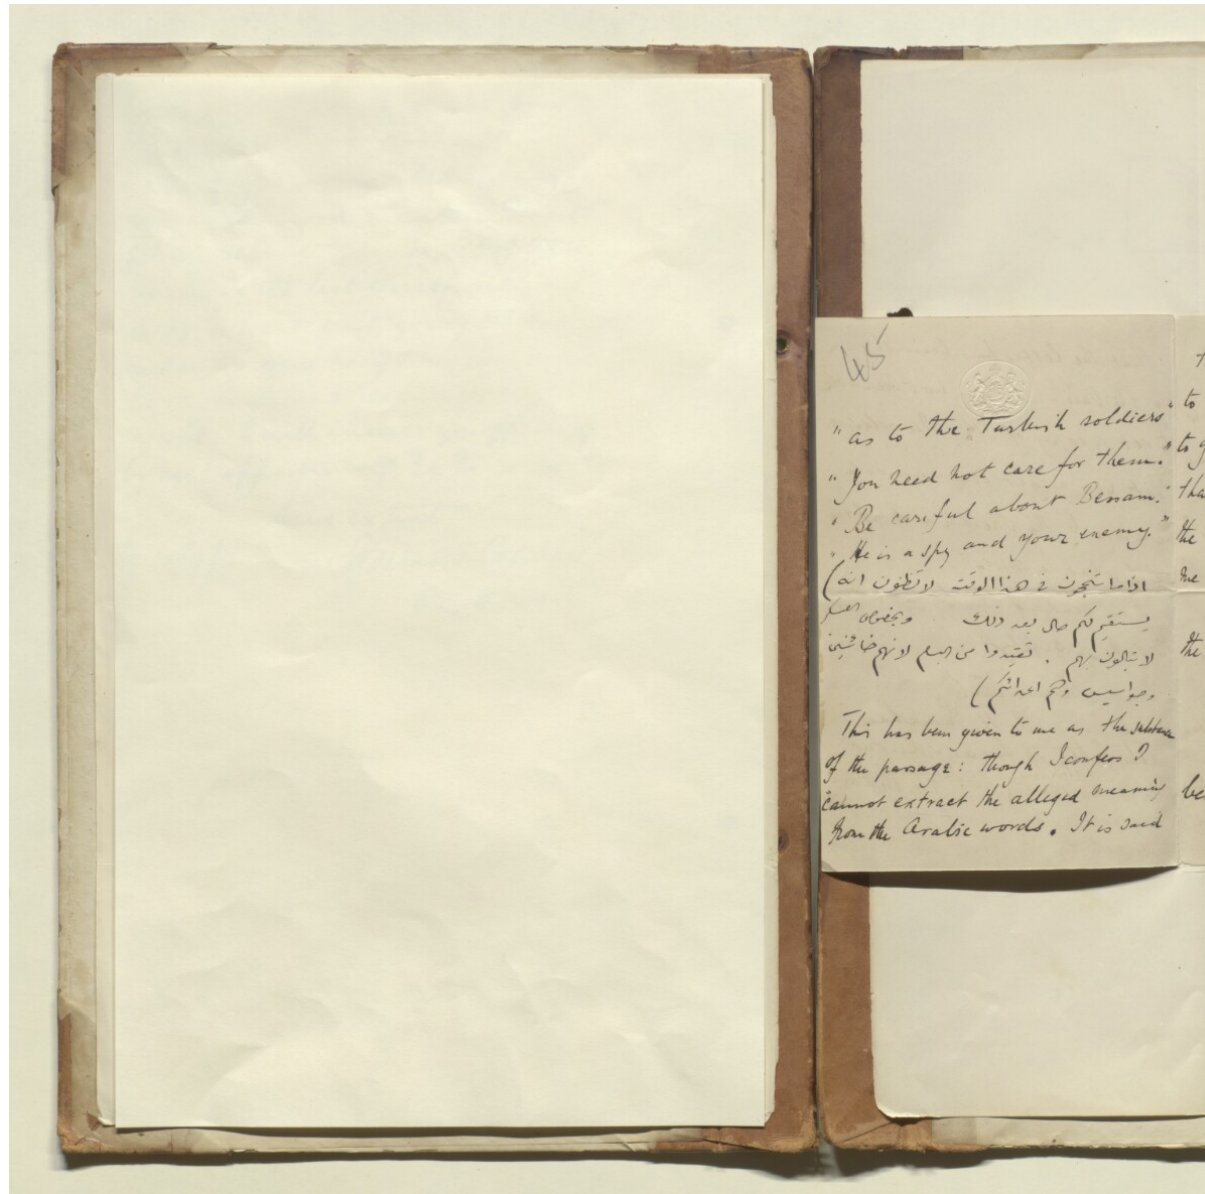 45
"as to the Turkish soldiers"
"You need not care for them."
"Be careful about Bessam."
"He is a spy and your enemy."
(اذا ما تنجحون في هذا الوقت لا تظنون انه
يستقيم لكم حال بعد ذلك
لا تبالون بهم . تقيدوا من البسام لانهم خائنين
وجواسيس وهم اعدائكم)
This has been given to me as the substance
of the passage: though I confess I
cannot extract the alleged meaning
from the Arabic words. It is said
to
to
the
me
the